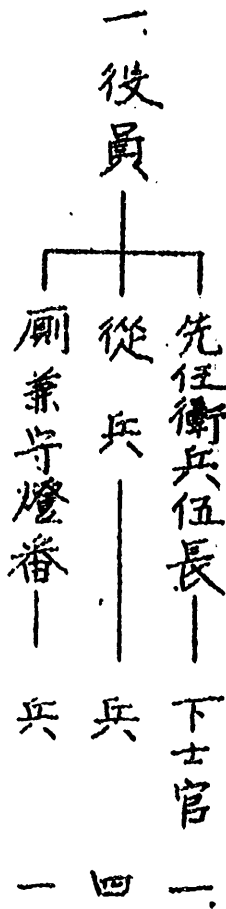 一、役員
先任衛兵伍長 下士官 一、
從兵 兵 四
厠兼守燈番 兵 一